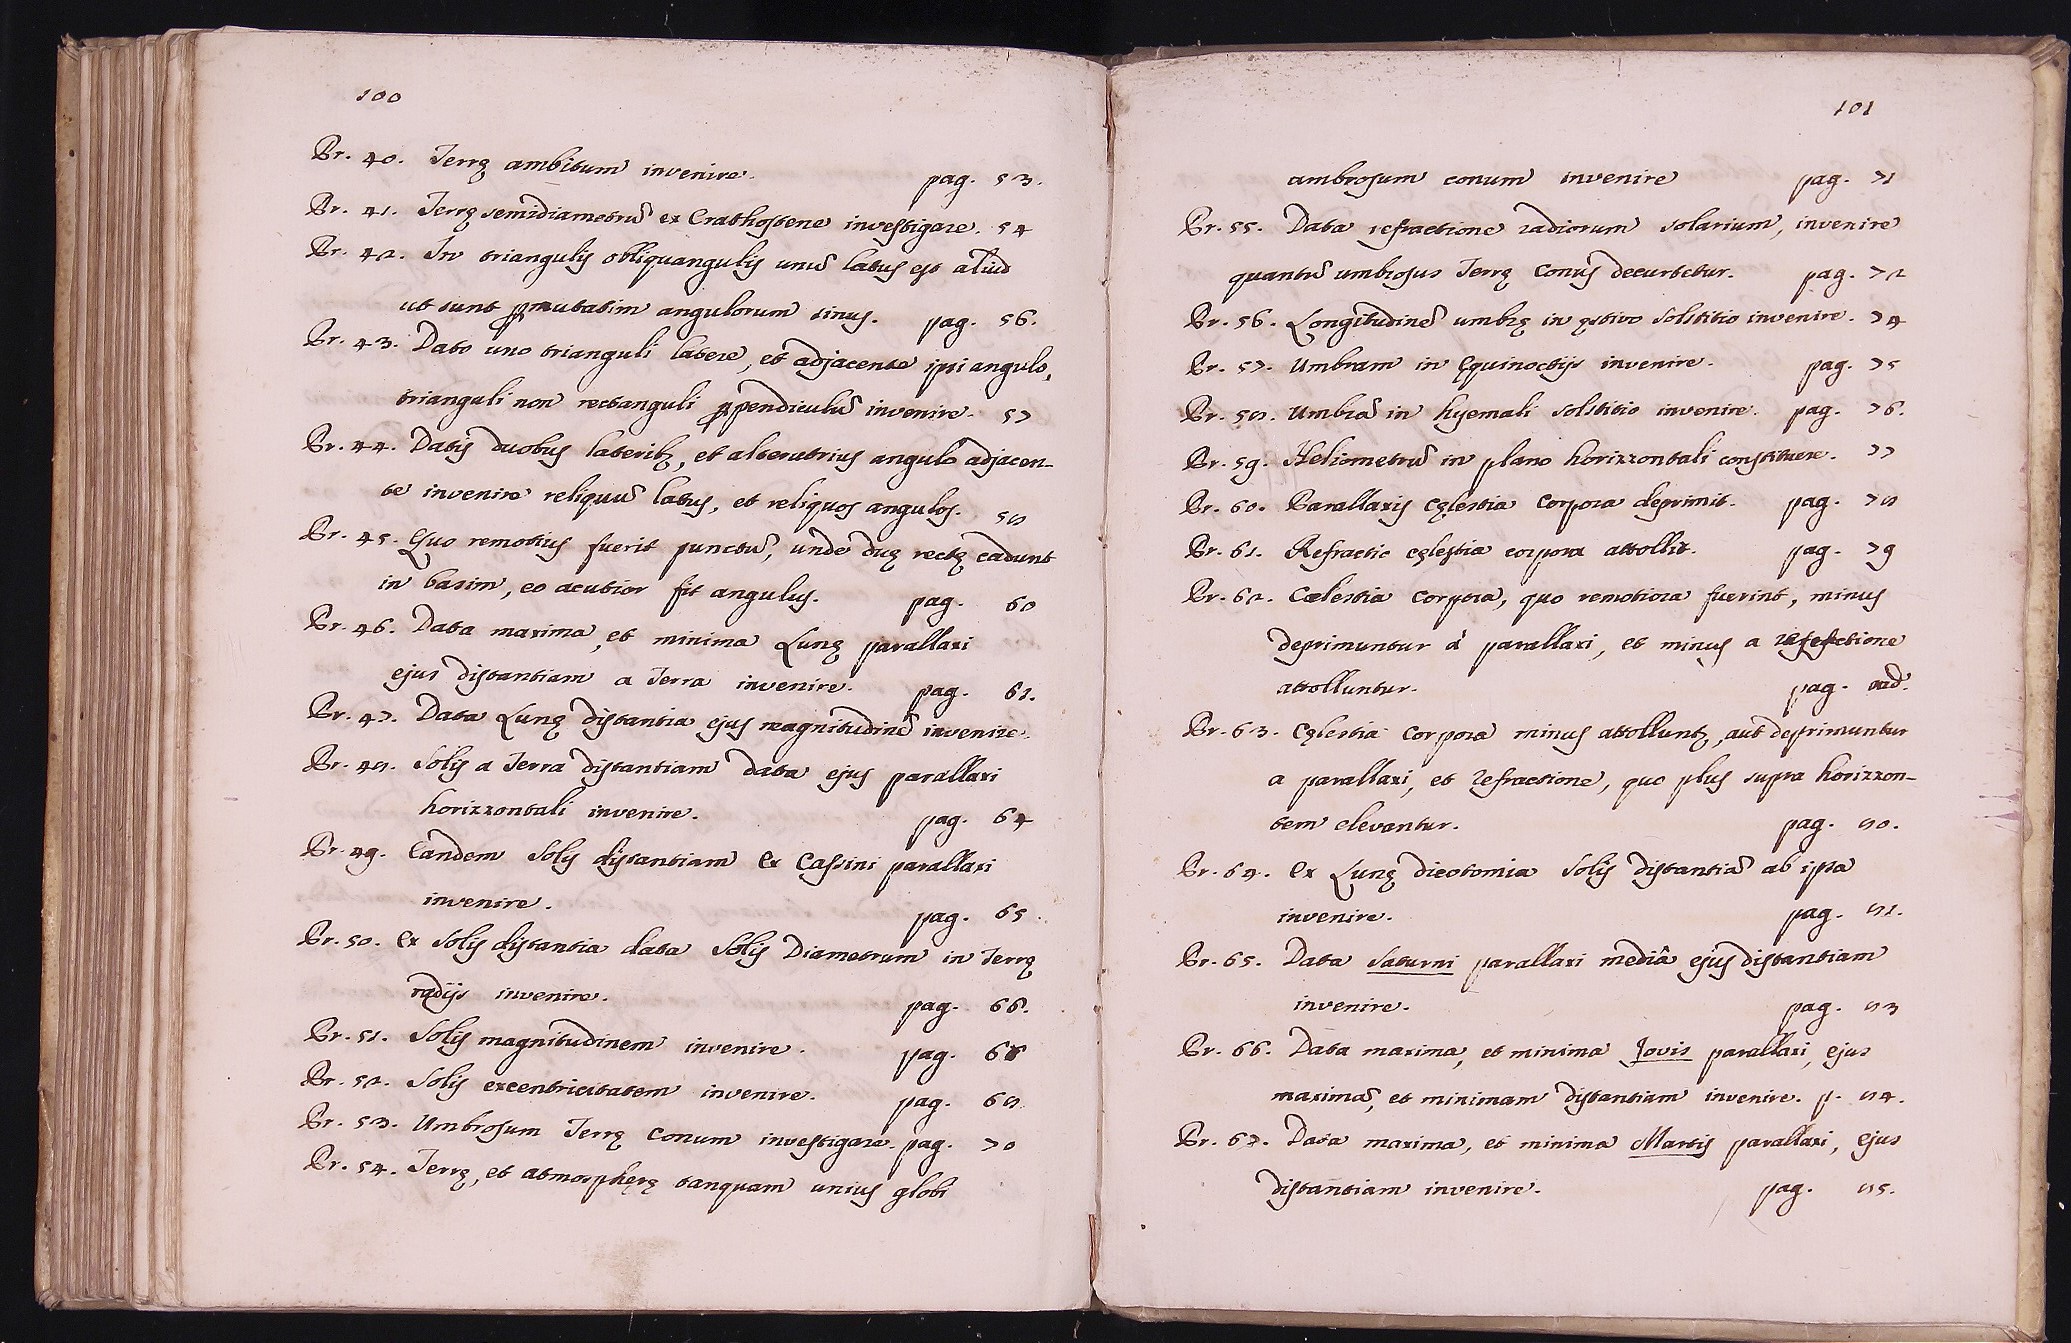 100
Pr. 40. Terrę ambitum invenire. pag. 53.
Pr. 41. Terrę semidiametrũ ex Erathostene investigare. 54
Pr. 42. In triangulis obliquangulis unũ latus est aliud
ut sunt ꝑmutatim angulorum sinus. pag. 56.
Pr. 43. Dato uno trianguli latere, et adjacente ipsi angulo,
trianguli non rectanguli ꝑpendiculũ invenire. 57
Pr. 44. Datis duobus lateribꝫ, et alterutrius angulo adjacen-
te invenire reliquũ latus, et reliquos angulos. 58
Pr. 45. Quo remotius fuerit punctũ, unde duę rectę cadunt
in basim, eo acutior fit angulus. pag. 60
Pr. 46. Data maxima, et minima Lunę parallaxi
ejus distantiam a Terra invenire. pag. 61.
Pr. 47. Data Lunę distantia ejus magnitudinẽ invenire.
Pr. 48. Solis a Terra distantiam data ejus parallaxi
horizzontali invenire. pag. 64
Pr. 49. Eandem Solis distantiam ex Cassini parallaxi
invenire. pag. 65.
Pr. 50. Ex Solis distantia data Solis Diametrum in Terrę
radijs invenire. pag. 66.
Pr. 51. Solis magnitudinem invenire. pag.
Pr. 52. Solis excentricitatem invenire. pag. 68
Pr. 53. Umbrosum Terrę conum investigare. pag. 70
Pr. 54. Terrę, et atmosphęrę tanquam unius globi
101
ambrosum conum invenire pag. 71
Pr. 55. Data refractione radiorum solarium, invenire
quantũ umbrosus Terrę conus decurtetur. pag. 72
Pr. 56. Longitudinẽ umbrę in ęstivo solstitio invenire. 74
Pr. 57. Umbram in Equinoctijs invenire. pag. 75
Pr. 58. Umbrã in hyemali solstitio invenire. pag. 76.
Pr. 59. Heliometrũ in plano horizzontali constituere. 77
Pr. 60. Parallaxis cęlestia corpora deprimit. pag. 78
Pr. 61. Refractio cęlestia corpora attollit. pag. 79
Pr. 62. Cœlestia corpora, quo remotiora fuerint, minus
deprimuntur à parallaxi, et minus a
attolluntur. pag. ead.
Pr. 63. Cęlestia corpora minus attolluntꝫ, aut deprimuntur
a parallaxi, et refractione, quo plus supra horizzon-
tem elevantur. pag. 80.
Pr. 64. Ex Lunę dicotomia Solis distantiã ab ipsa
invenire. pag. 81.
Pr. 65. Data Saturni parallaxi mediâ ejus distantiam
invenire. pag. 83
Pr. 66. Data maxima, et minima Jovis parallaxi, ejus
maximã, et minimam distantiam invenire. p. 84.
Pr. 67. Data maxima, et minima Martis parallaxi, ejus
distantiam invenire. pag. 85.